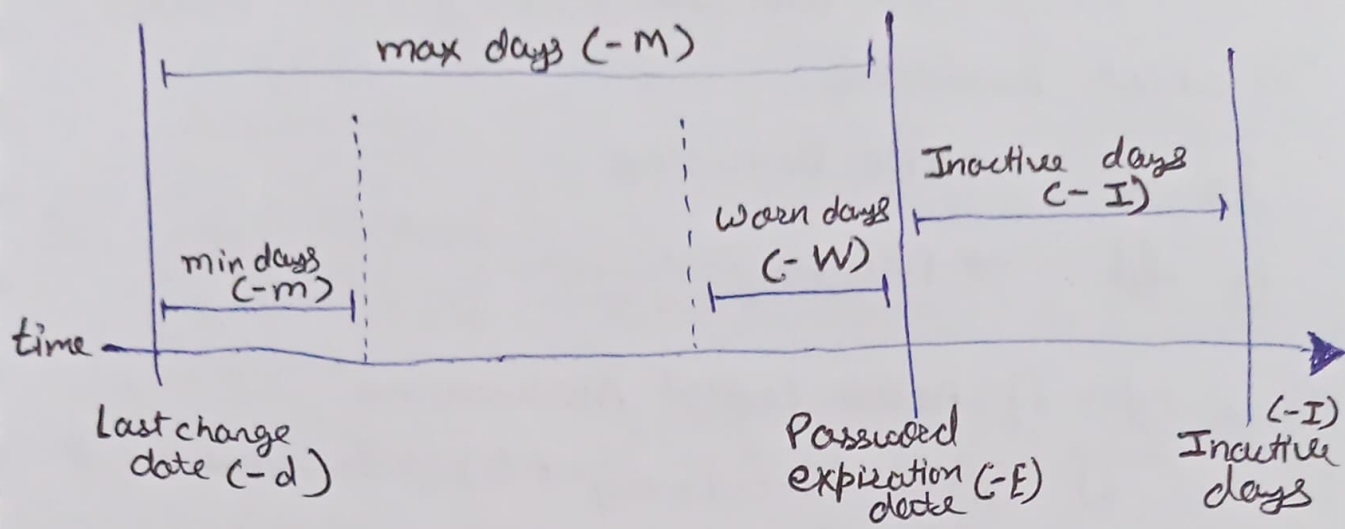 max days (-M)
Inactive days
(-I)
warn days
(-W)
min days
(-m)
time
Last change
date (-d)
Password
expiration (-E)
date
(-I)
Inactive
days